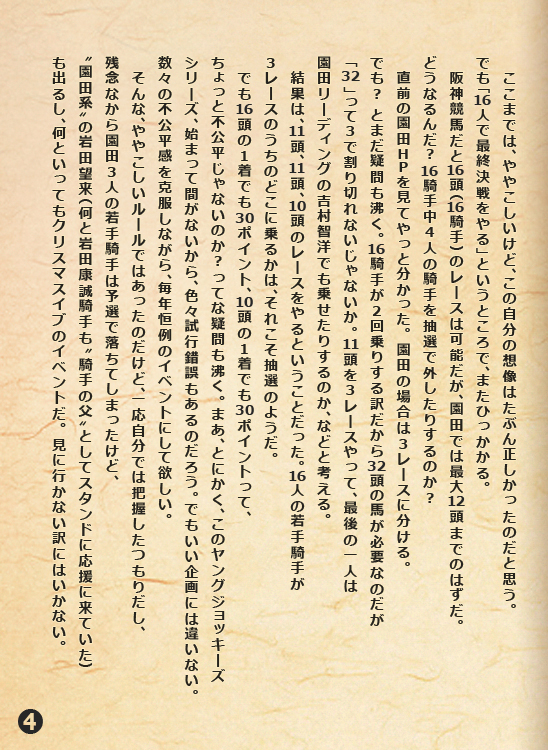 ここまでは、ややこしいけど、この自分の想像はたぶん正しかったのだと思う。
でも「16人で最終決戦をやる」というところで、またひっかかる。
阪神競馬だと16頭(16騎手)のレースは可能だが、園田では最大12頭までのはずだ。
どうなるんだ？16騎手中４人の騎手を抽選で外したりするのか？
直前の園田ＨＰを見てやっと分かった。園田の場合は３レースに分ける。
でも？とまだ疑問も沸く。16騎手が２回乗りする訳だから32頭の馬が必要なのだが
「32」って３で割り切れないじゃないか。11頭を３レースやって、最後の一人は
園田リーディングの吉村智洋でも乗せたりするのか、などと考える。
結果は、11頭、11頭、10頭のレースをやるということだった。16人の若手騎手が
３レースのうちのどこに乗るかは、それこそ抽選のようだ。
でも16頭の１着でも30ポイント、10頭の１着でも30ポイントって、
ちょっと不公平じゃないのか？ってな疑問も沸く。まあ、とにかく、このヤングジョッキーズ
シリーズ、始まって間がないから、色々試行錯誤もあるのだろう。でもいい企画には違いない。
数々の不公平感を克服しながら、毎年恒例のイベントにして欲しい。
そんな、ややこしいルールではあったのだけど、一応自分では把握したつもりだし、
残念なから園田３人の若手騎手は予選で落ちてしまったけど、
〝園田系〟の岩田望来(何と岩田康誠騎手も〝騎手の父〟としてスタンドに応援に来ていた)
も出るし、何といってもクリスマスイブのイベントだ。見に行かない訳にはいかない。
4